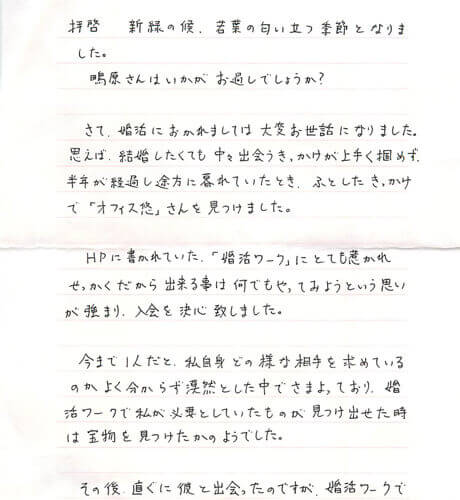 拝啓　新緑の候、若葉の匂い立つ季節となりま
した。
鴫原さんはいかがお過しでしょうか?
さて、婚活におかれましては大変お世話になりました。
思えば、結婚したくても中々出会うきっかけが上手く掴めず、
半年が経過し途方に暮れていたとき、ふとしたきっかけ
で「オフィス悠」さんを見つけました。
HPに書かれていた、「婚活ワーク」にとても惹かれ
せっかくだから出来る事は何でもやってみようという思い
が強まり、入会を決心致しました。
今まで1人だと、私自身どの様な相手を求めている
のかよく分からず漠然とした中でさまよっており、婚
活ワークで私が必要としていたものが見つけ出せた時
は宝物を見つけたかのようでした。
その後、直ぐに彼と出会ったのですが、婚活ワークで